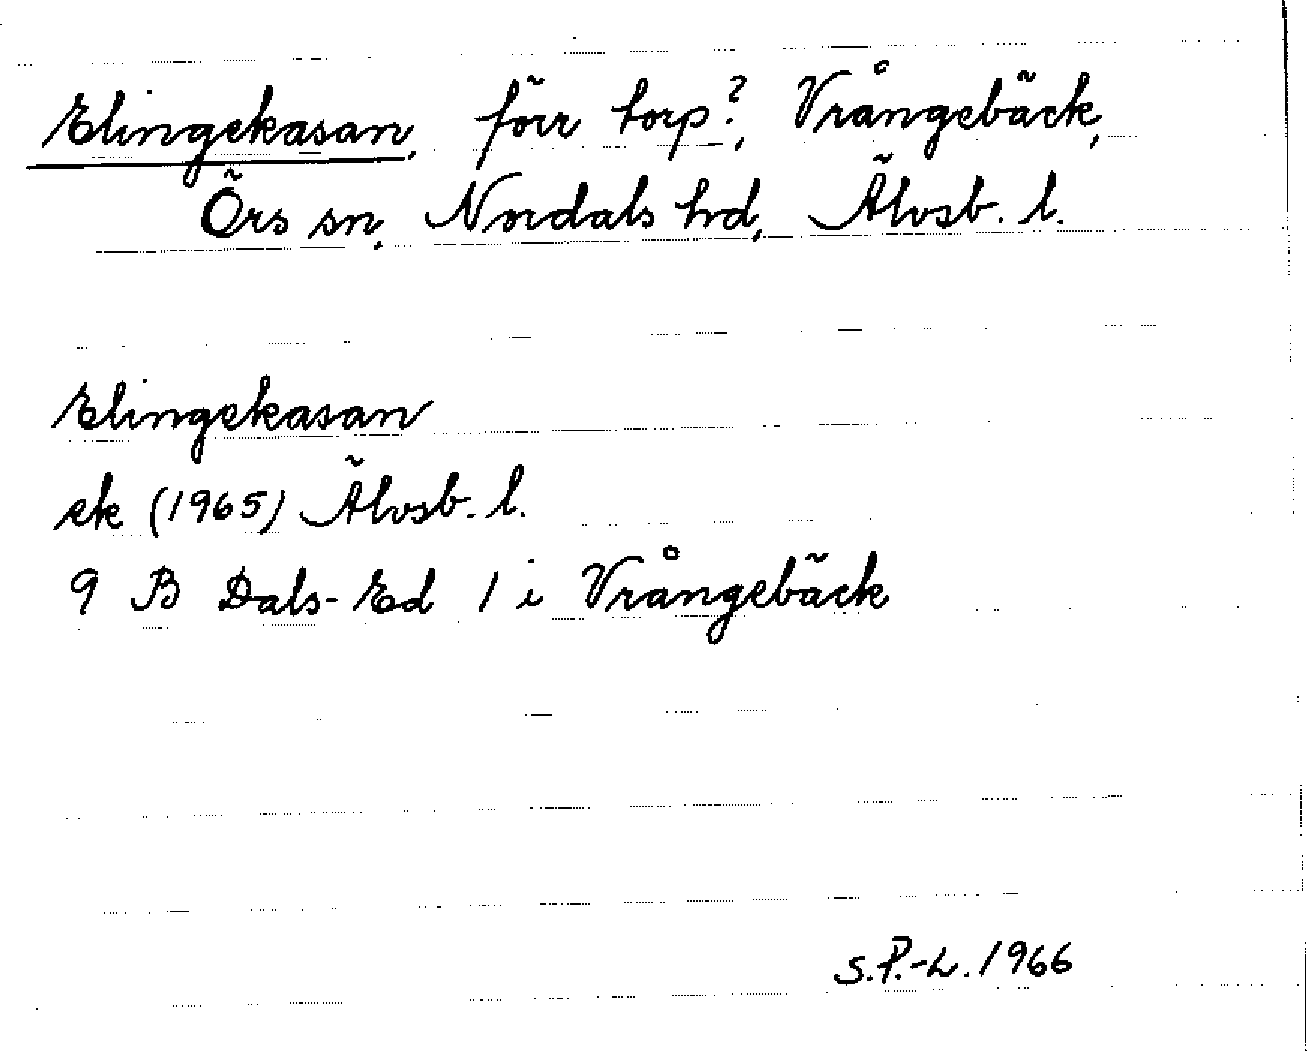 Elingekasan, förr torp?, Vrångebäck,
Örs sn, Nordals hd, Älvsb. l.
Elingekasan
ek (1965) Älvsb. l.
9 B Dals-Ed 1 i Vrångebäck
S.P.-L. 1966